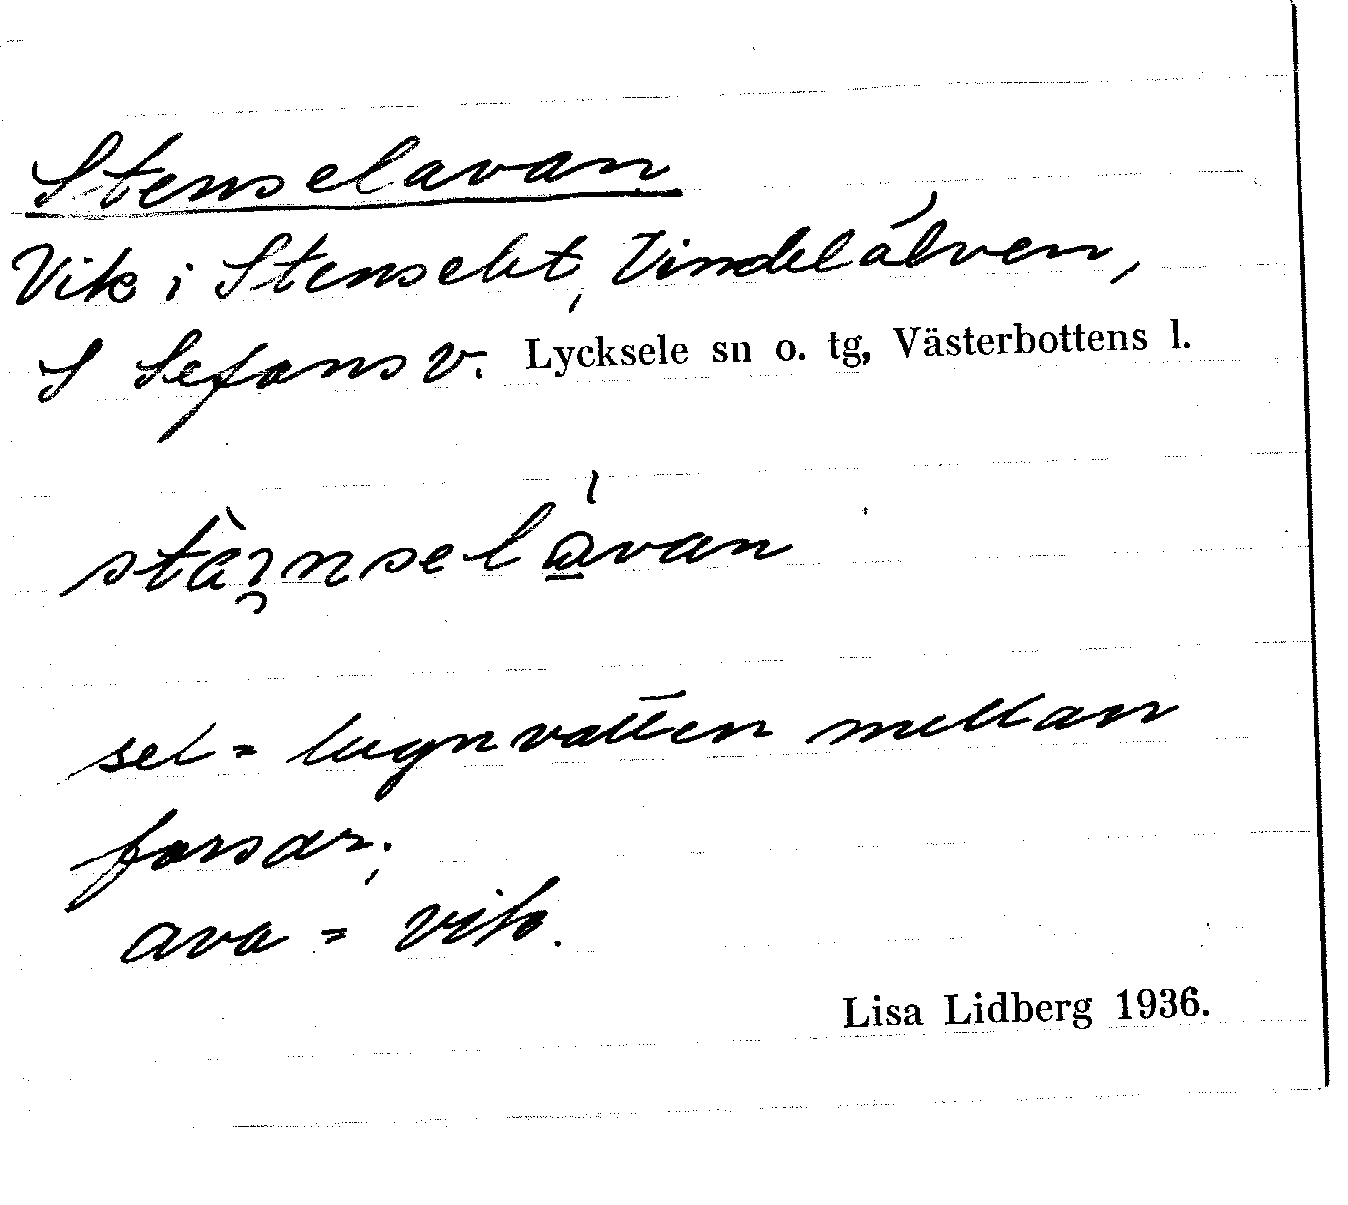 Stenselavan
Vik i Stenselet, Vindelälven,
S Sefans v. Lycksele sn o. tg, Västerbottens l.
sel = lugnvatten mellan
forsar;
ava = vik.
Lisa Lidberg 1936.